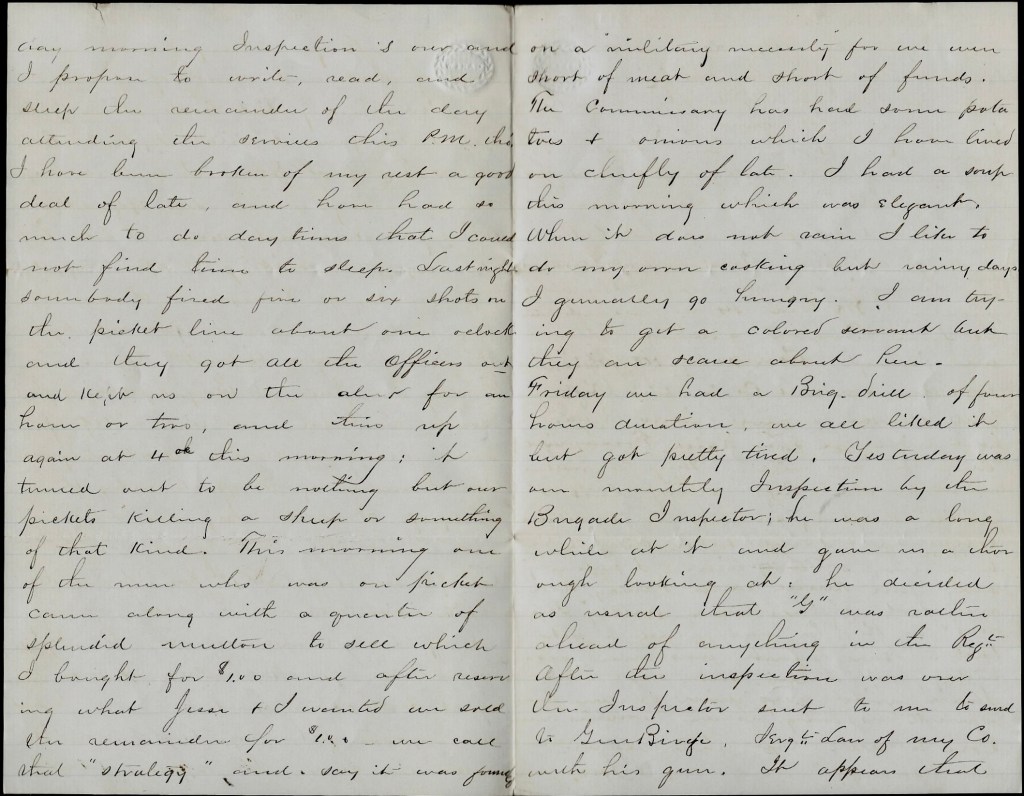 day morning Inspection is over and
I propose to write, read, and
sleep the remainder of the day
attending the services this P.M. tho
I have been broken of my rest a good
deal of late, and have had so
much to do day times that I could
not find time to sleep. Last night
somebody fired five or six shots on
the picket line about one oclock
and they got all the Officers out
and Kept us on the alert for an
hour or two, and then up
again at 4 ock this morning; it
turned out to be nothing but our
pickets Killing a sheep or something
of that Kind. This morning one
of the men who was on picket
came along with a quarter of
splendid mutton to sell which
I bought for $1.00 and after reserv
ing what Jesse & I wanted we sold
the remainder for $1.00 - we call
that "strategy" and say it was
on a "military necessity" for we were
short of meat and short of funds.
The Commissary has had some pota
toes & onions which I have lived
on chiefly of late. I had a soup
this morning which was elegant.
When it does not rain I like to
do my own cooking but rainy days
I generally go hungry. I am try-
ing to get a colored servant but
they are scarce about here.
Friday we had a Brig. drill of four
hours duration, we all liked it
but got pretty tired. Yesterday was
our monthly Inspection by the
Brigade Inspector; he was a long
while at it and gave us a thor
ough looking at: he decided
as usual that "G" was rather
ahead of anything in the Regt.
After the inspection was over
the Inspector sent to me to send
to Gen Birge, Sergt. Law of my Co.
with his gun. It appears that